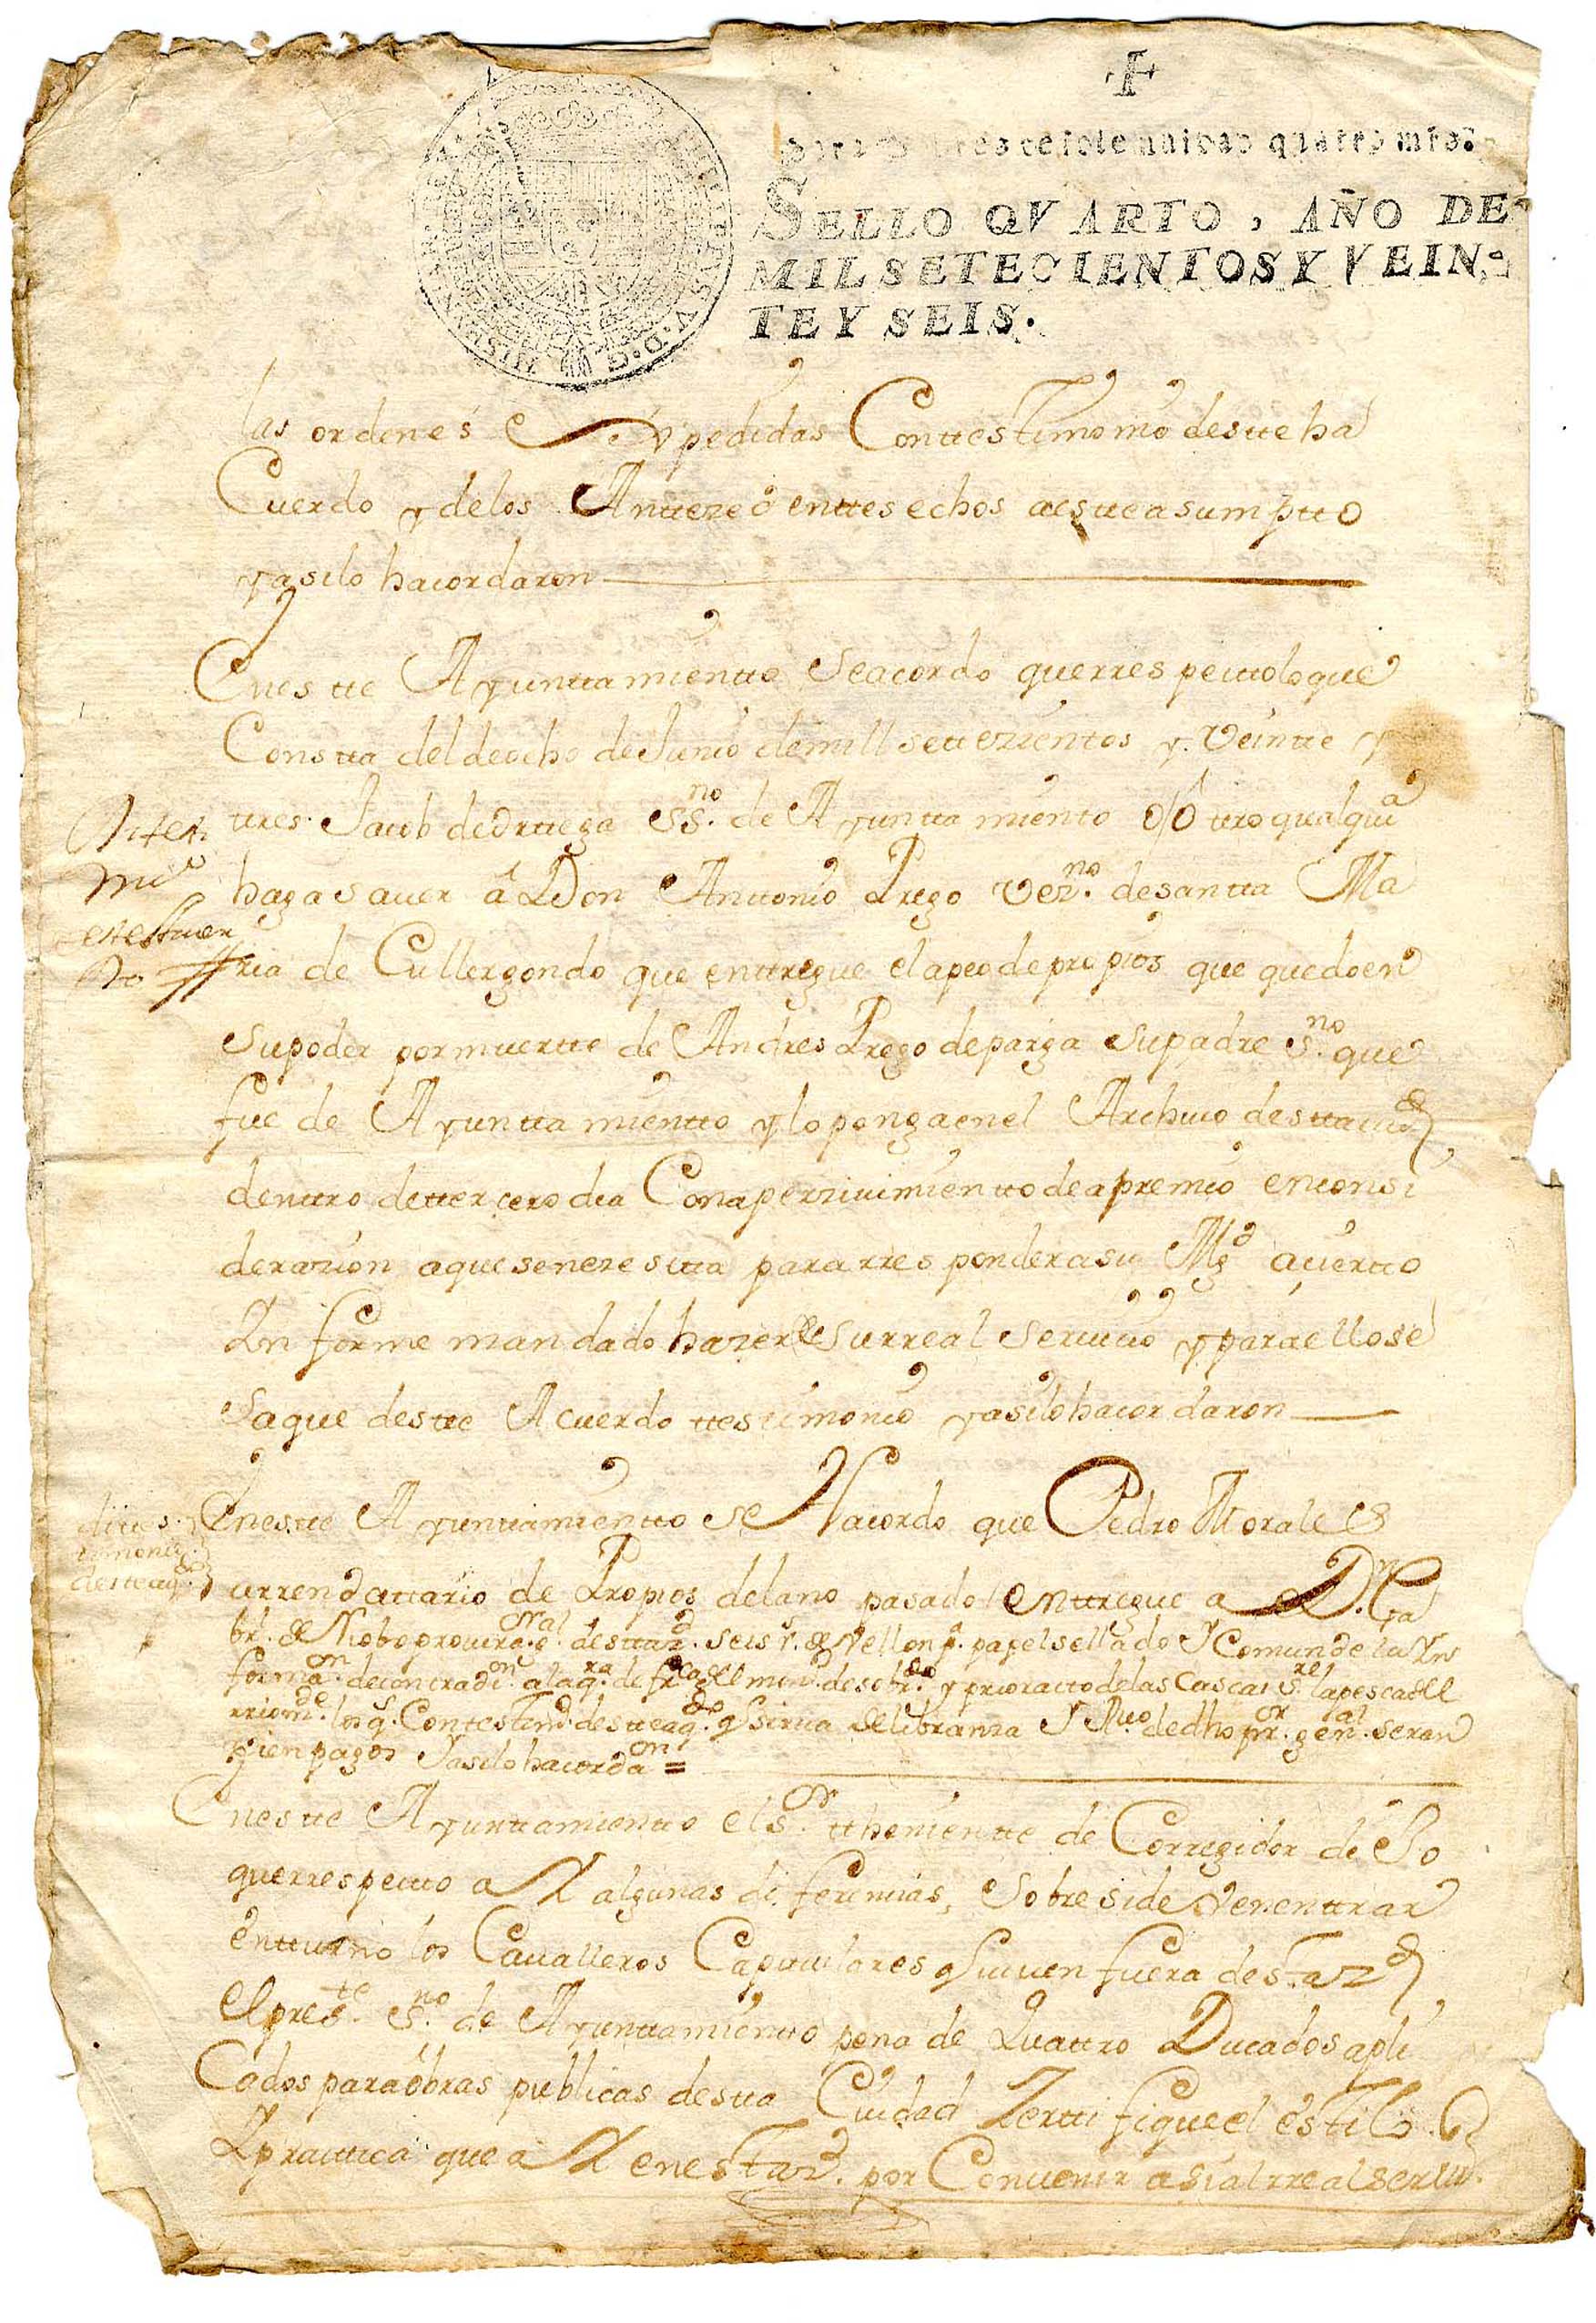 SELLO QVARTO, AÑO DE
MIL SETECIENTOS Y VEIN-
TE Y SEIS.
las ordenes Expedidas Conttestimonio destte ha
Cuerdo y delos Anttezedenttes echos aestte asumptto
y asilo hacordaron
Enestte Ayunttamientto Seacordo querrespecttoloque
Constta del deocho deJunio demill settezientos y Veintte y
ttres Jacob deOrttega SSno. de Ayunttamiento o ottro qualquia
haga sauer â Don Anttonio Prego vezno. desantta Ma
ria de Cullergondo que enttregue el apeo depropios que quedoen
Supoder pormuertte de Andres Prego deparga Supadre Sno. que
fue de Ayunttamientto y lo pongaenel Archiuo desttaciud
denttro dettercero dia Conaperziuimienttodeapremio enconsi
derazion aquesenezesitta para rresponderasu Mgd ziertto
Informe mandado hazer Surreal Seruicio y paraellose
Saque destte Acuerdo ttestimonio y asilohacordaron
Enestte Ayunttamientto se Hacordo que Pedro Morales
arrendattario de Propios delano pasado enttregue a Dn. Ga
br. de Niobo procura. gral. desttaz. seis rs. de Vellon pa. papel sellado Y Comun de la Yn
forma.on decontradion. alaqra. de frca del mon. de sobr.do y prioratto de las Cascas Se. lapescadel
rrio mde. los qs. Contestimo. desteaqdo. y sirua de libranza Y Ruo de dho pror. genal. seran
vien pagos Y asilo hacordaon =
Enestte Ayunttamientto elSor. ttheniente de Corregidor dijo
querrespectto a X algunas diferencias, Sobre side Venenttrar
Entturno los Caualleros Capittulares q Viuen fuera destaz d
Elpreste. Sno. de Ayunttamientto pena de Quattro Ducados apli
Cados para obras publicas destta Ciudad Zerttifiqueel estilo
Y practtica que a X enestaz. por Conuenir asialrrealseruio.